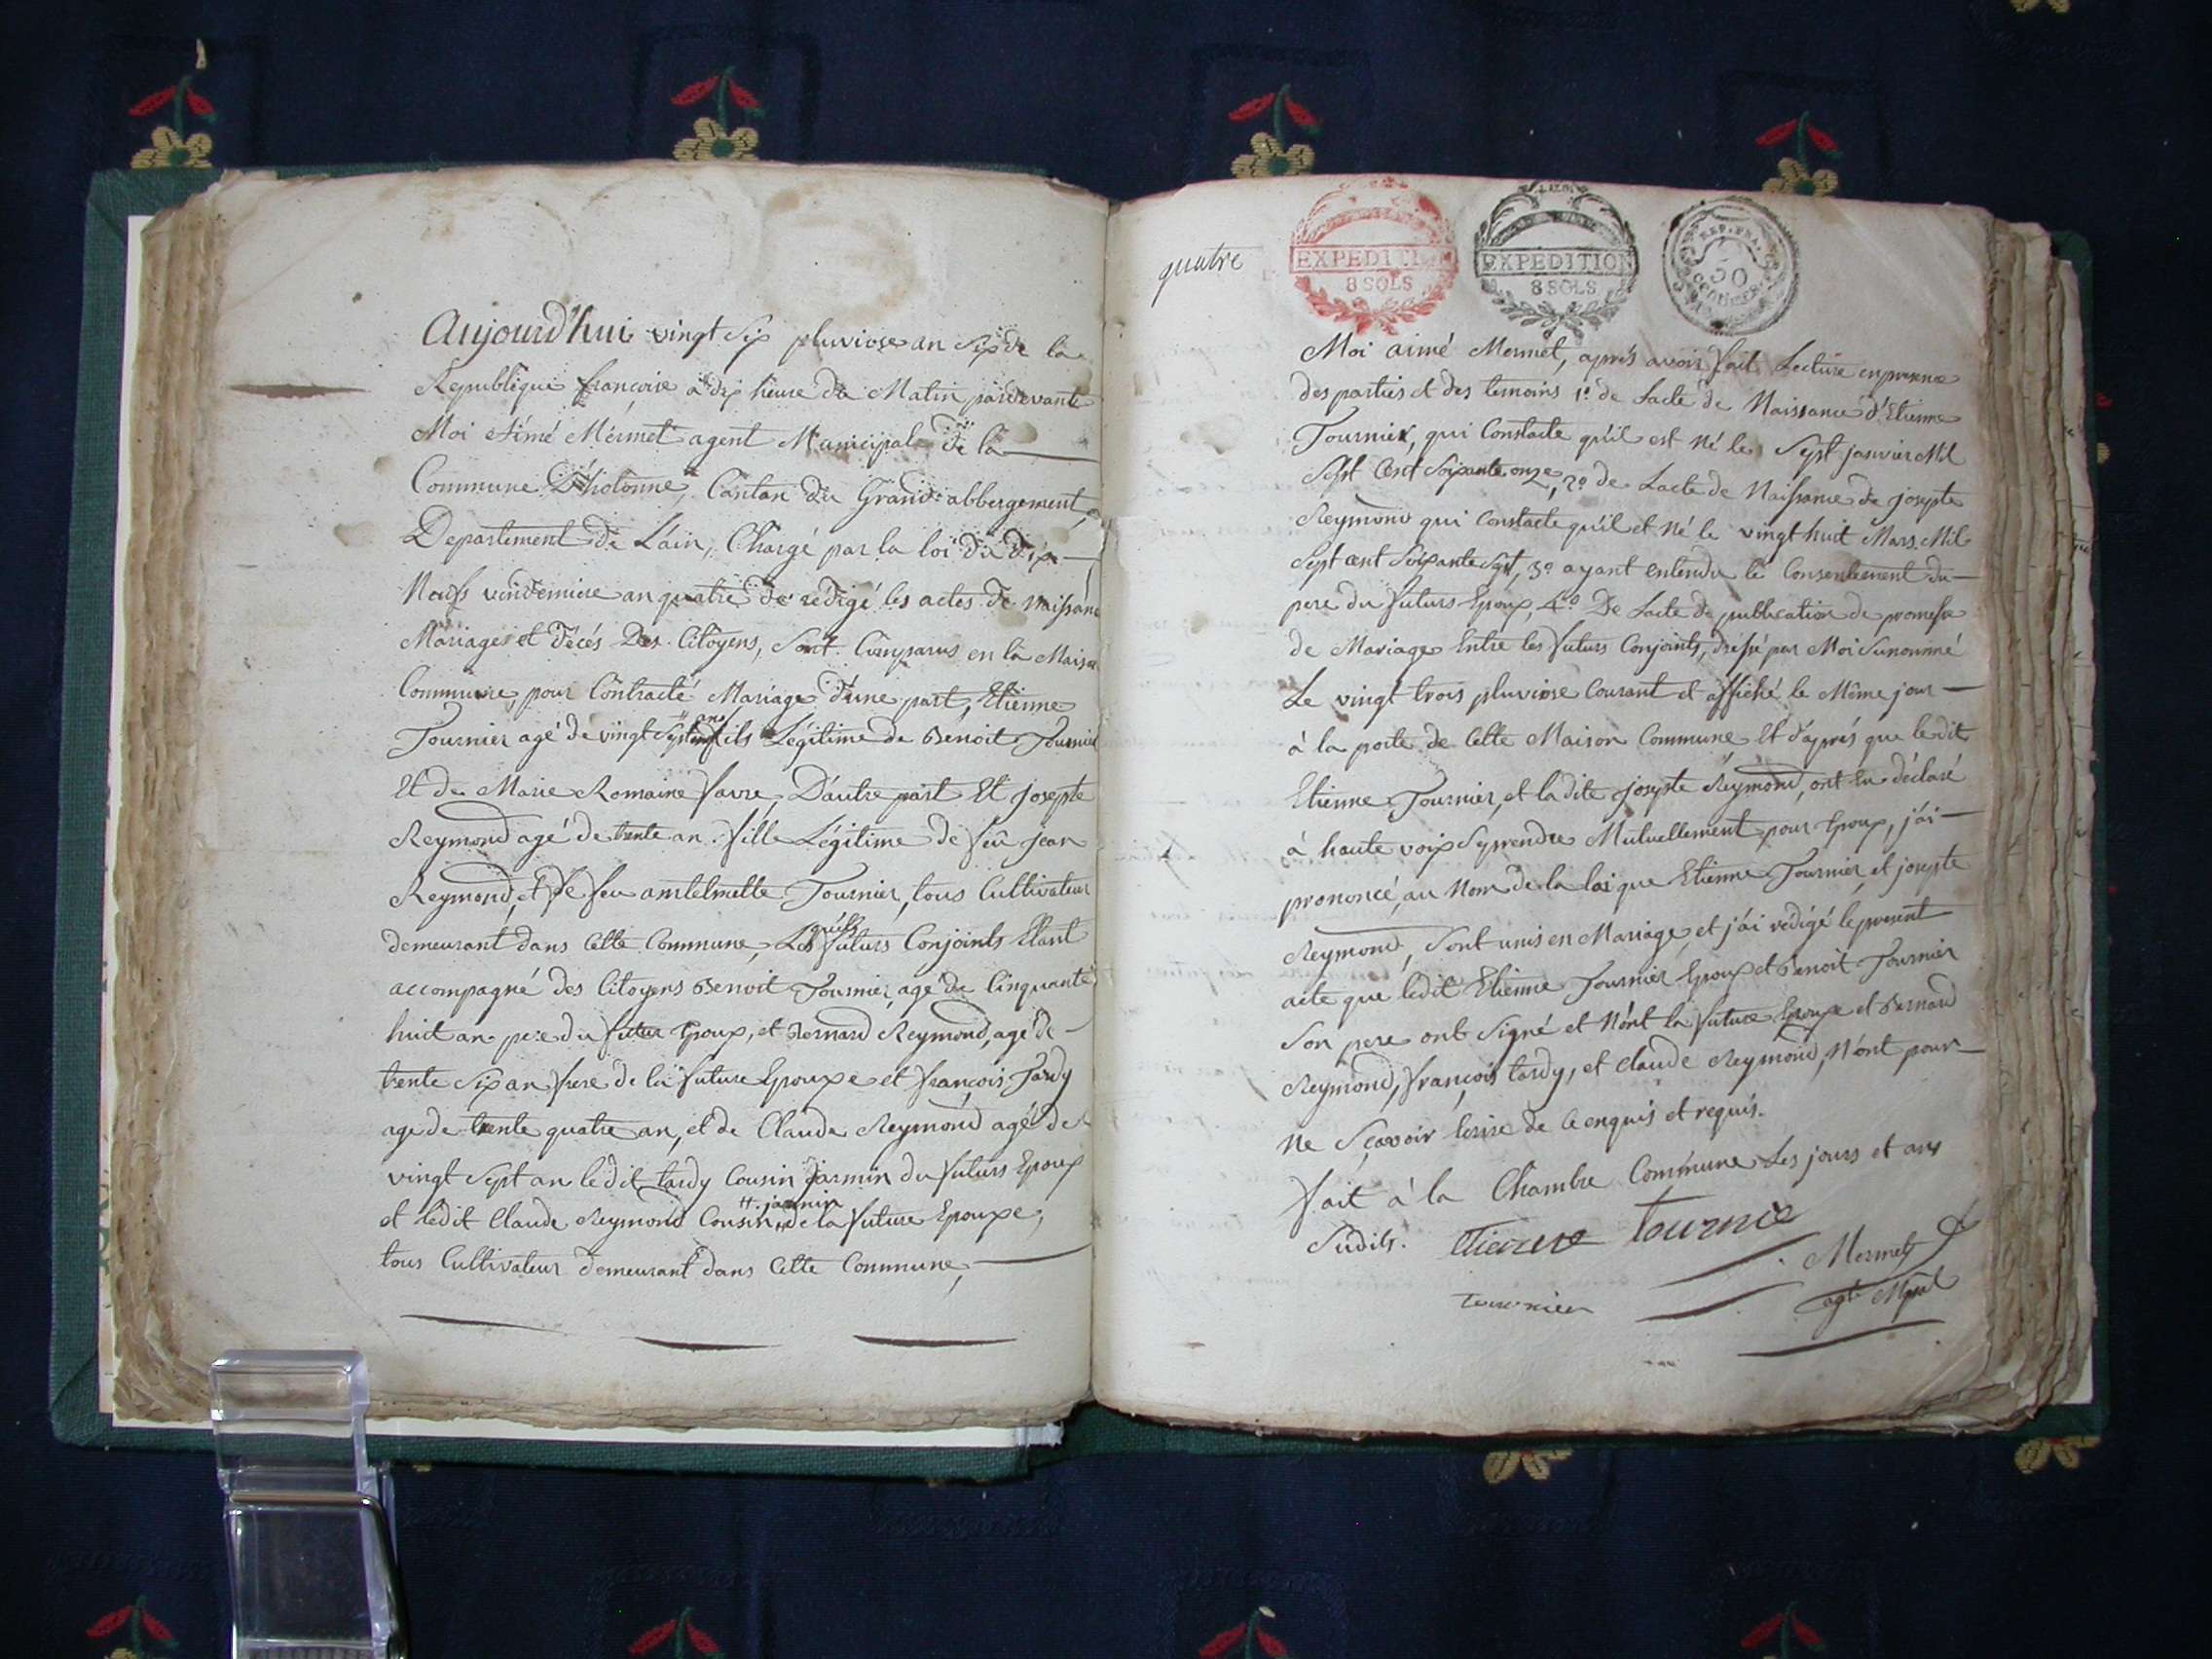 Aujourd'hui vingt six pluviose an six de la
Republique francoise a dix heure du Matin pardevante
Moi Aimé Mérmet agent Municipal de la
Commune D'hotonne, Canton du Grand abbergement,
Departement de L'ain, Chargé par la loi du dix
Neuf vindemiere an quatre de redigé les actes de Naissance
Mariage et décés Des Citoyens, Sont Comparus en la Maison
Commune, pour Contracté Mariage d'une part, Etienne
Tournier agé de vingt Sept ans fils Légitime de Benoit Tournier
Et de Marie Romaine favre, D'autre part Et Josepte
Reymond agé de trente an fille Légitime de feu Jean
Reymond, et de feu antelmette Tournier, tous Cultivateur
demeurant dans Cette Commune, Les quels futurs Conjoints Etant
accompagné des Citoyens Benoit Tournier agé de Cinquante
huit an pere du futur Epoux, et Bernard Reymond, agé de
trente Six an frere de la future Epouxe et françois Tardy
age de trente quatre an, et de Claude Reymond agé de
vingt Sept an ledit tardy Cousin Jarmin du futurs Epoux
et Ledit Claude Reymond Cousin jarmin de la future Epouxe,
tous Cultivateur demeurant dans Cette Commune,
quatre
EXPEDITION
8 SOLS
EXPEDITION
8 SOLS
REP. FRA.
50
CENTIMES
Moi aimé Mermet, aprés avoir fait Lecture en presence
des parties et des temoins 1º de Lacte de Naissance d'Etienne
Tournier, qui Constacte qu'il est Né le Sept janvier Mil
Sept Cent Soixante onze, 2º de Lacte de Naissance de josepte
Reymond qui Constacte qu'il et Né le vingt huit Mars Mil
Sept cent Soixante Sept, 3º ayant entendu le Consentement du
pere du futurs Epoux, 4º De Lacte de publication de promesse
de Mariage Entre les futurs Conjoints, dressé par Moi Sunommé
Le vingt trois pluviose Courant et affiché le Même jour
à la porte de Cette Maison Commune Et d'aprés que ledit
Etienne Tournier, et la dite Josepte Reymond, ont Eu déclaré
à haute voix Se prendre Mutuellement pour Epoux, j'ai
prononcé, au Nom de la Loi que Etienne Tournier, et josepte
Reymond, Sont unis en Mariage, et j'ai redigé le present
acte que ledit Etienne Tournier Epoux et Benoit Tournier
Son pere ont Signé et Nont la future Epouxe et Bernard
Reymond, françois tardy, et Claude Reymond, N'ont pour
Ne Scavoir Ecrire de ce enquis et requis.
fait à la Chambre Commune Les jours et ans
Sudits. Etienne tournie
Mermet
tournier
agt Mpal